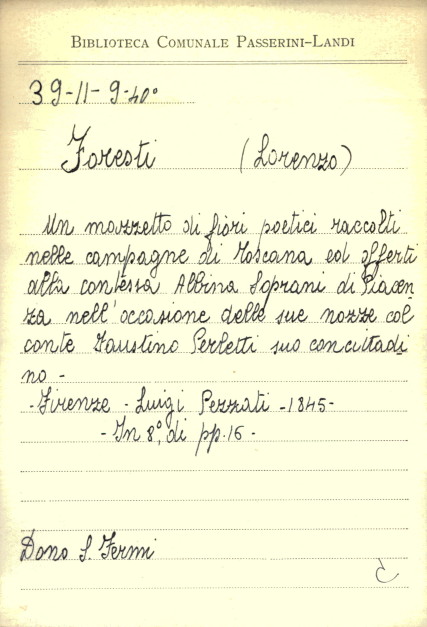 BIBLIOTECA COMUNALE PASSERINI-LANDI
39-11-9-40°
Foresti (Lorenzo)
Un mazzetto di fiori poetici raccolti
nelle campagne di Toscana ed offerti
alla contessa Albina Soprani di Piacen
za nell'occasione delle sue nozze col
conte Faustino Perletti suo concittadi
no -
- Firenze - Luigi Pezzati - 1845 -
- In 8°, di pp. 16 -
Dono S. Fermi
C